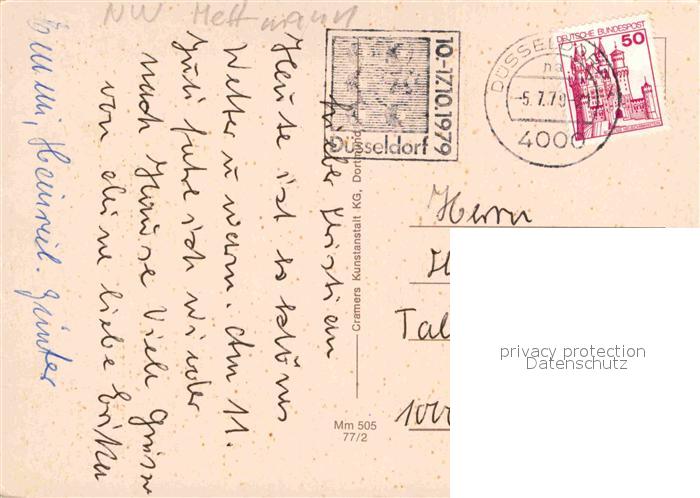 NW Mettmann
10.-17.10.1979
Düsseldorf
DÜSSELDORF
-5.7.79
4000
DEUTSCHE BUNDESPOST
50
Lieber Kristian
Heute ist so schönes
Wetter u warm. Am 11.
Juli fahre ich wieder
nach Hause Viele Grüsse
von deine liebe Erika
Emmi, Heinrich. Günter
Cramers Kunstanstalt KG, Dortmund
Mm 505
77/2
Herrn
H
Tal
1000
privacy protection
Datenschutz